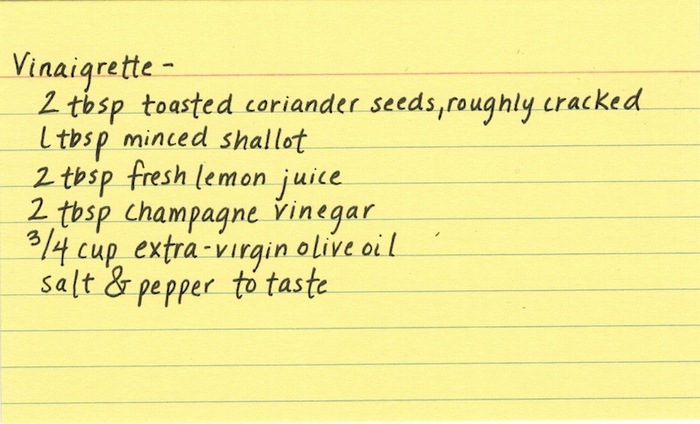 Vinaigrette -
2 tbsp toasted coriander seeds, roughly cracked
1 tbsp minced shallot
2 tbsp fresh lemon juice
2 tbsp champagne vinegar
3/4 cup extra-virgin olive oil
salt & pepper to taste